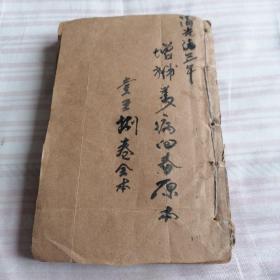 清光绪三年
增補萬病回春原本
壹至捌卷全本